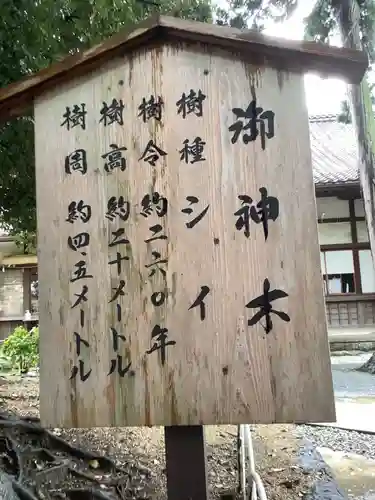 御神木
樹種 シイ
樹令 約二六〇年
樹高 約二十メートル
樹周 約四.五メートル